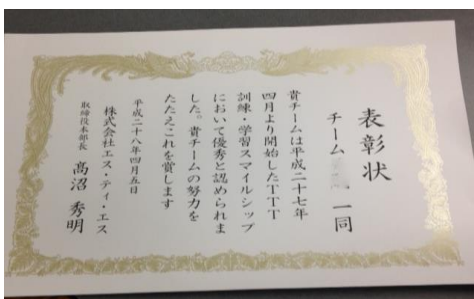 表彰状
チーム 一同
貴チームは平成二十七年
四月より開始したTTT
訓練・学習スマイルシップ
において優秀と認められま
した。貴チームの努力を
たたえこれを賞します
平成二十八年四月五日
株式会社エス・ティ・エス
取締役本部長 髙沼 秀明